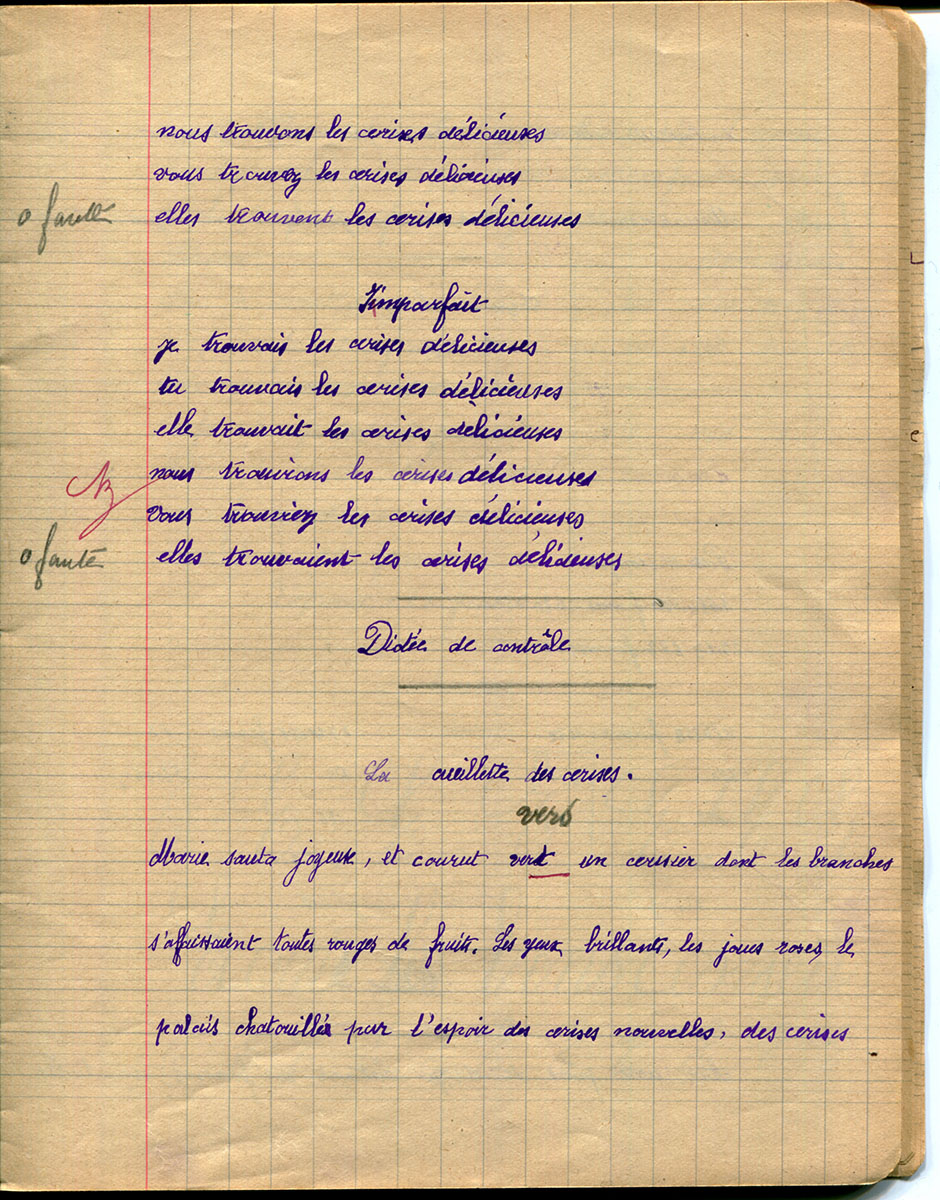 nous trouvons les cerises délicieuses
vous trouvez les cerises délicieuses
0 faute elles trouvent les cerises délicieuses
Imparfait
je trouvais les cerises délicieuses
tu trouvais les cerises délicieuses
elle trouvait les cerises délicieuses
nous trouvions les cerises délicieuses
vous trouviez les cerises délicieuses
0 faute elles trouvaient les cerises délicieuses
Dictée de contrôle
La cueillette des cerises.
vers
Marie sauta joyeuse, et courut vert un cerisier dont les branches
s'affaissaient toutes rouges de fruits. Les yeux brillants, les joues roses, le
palais chatouillé par l'espoir des cerises nouvelles, des cerises